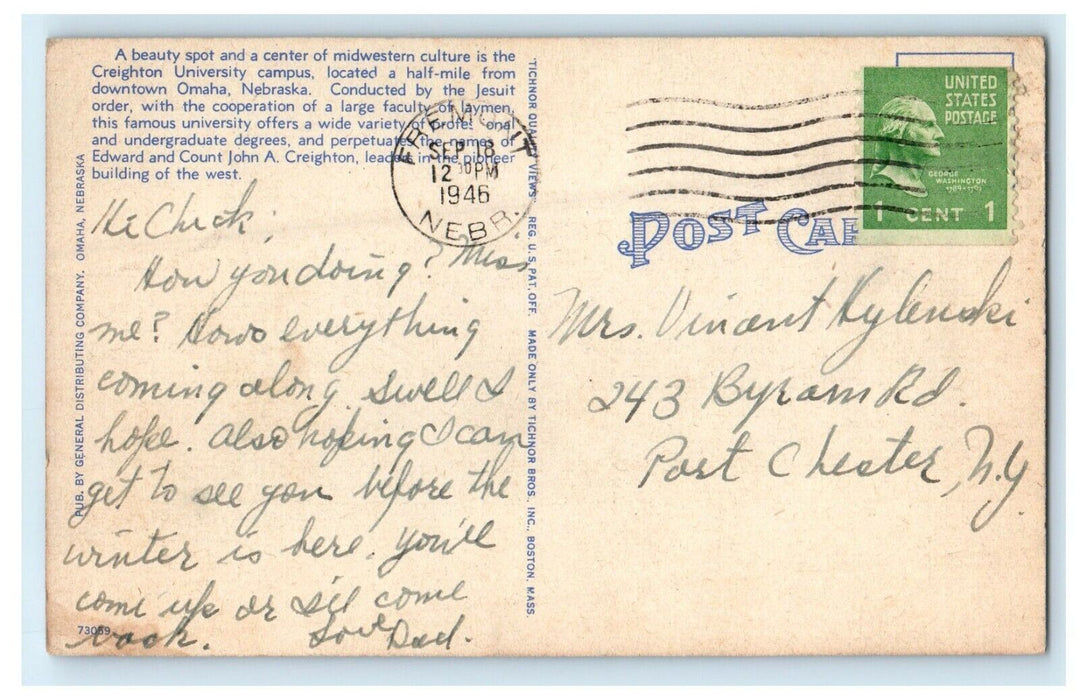 A beauty spot and a center of midwestern culture is the
Creighton University campus, located a half-mile from
downtown Omaha, Nebraska. Conducted by the Jesuit
order, with the cooperation of a large faculty of laymen,
this famous university offers a wide variety of professional
and undergraduate degrees, and perpetuates the names of
Edward and Count John A. Creighton, leaders in the pioneer
building of the west.
PUB. BY GENERAL DISTRIBUTING COMPANY, OMAHA, NEBRASKA
Hi Chick,
How you doing? Miss
me? Hows everything
coming along. Swell I
hope. Also hoping I can
get to see you before the
winter is here. You'll
come up or I'll come
back.
Love Dad.
73059
TICHNOR QUALITY VIEWS REG. U.S. PAT. OFF. MADE ONLY BY TICHNOR BROS. INC., BOSTON, MASS.
FREMONT
SEP 18
12 30 PM
1946
NEBR.
UNITED
STATES
POSTAGE
GEORGE
WASHINGTON
1789-1797
1 CENT 1
POST CAR
Mrs. Vincent Hylenski
243 Byram Rd.
Port Chester, N.Y.